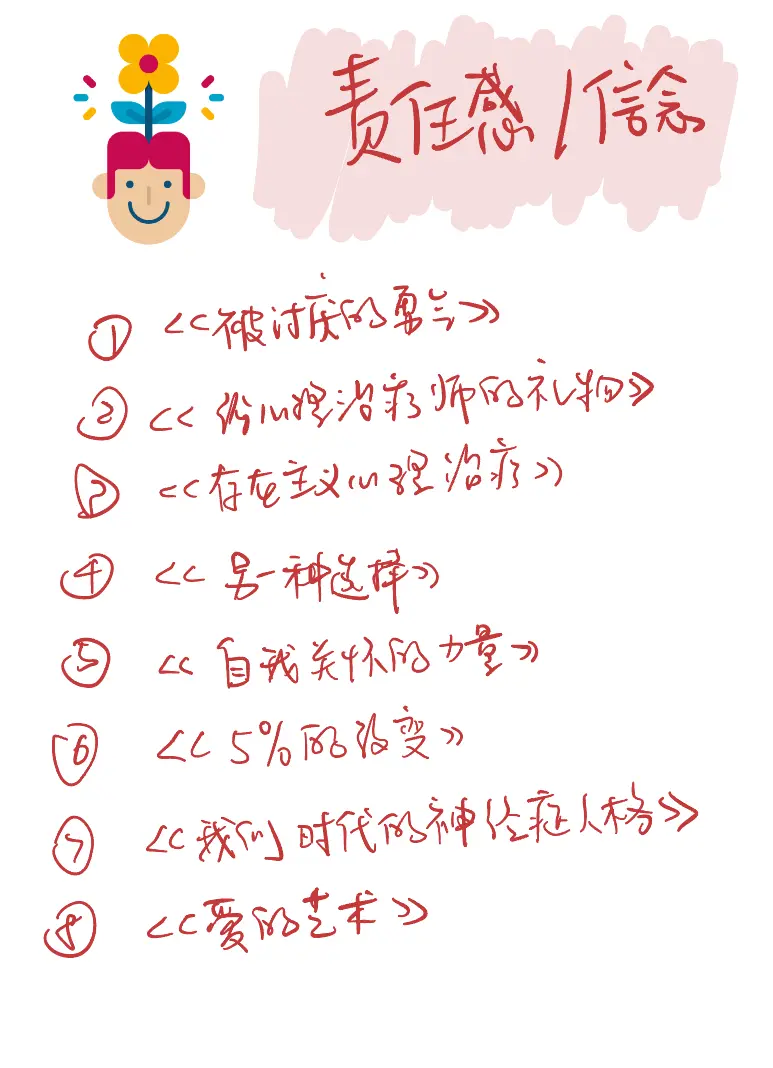 责任感/信念
① <<被讨厌的勇气>>
② <<给心理治疗师的礼物>>
③ <<存在主义心理治疗>>
④ <<另一种选择>>
⑤ <<自我关怀的力量>>
⑥ <<5%的改变>>
⑦ <<我们时代的神经症人格>>
⑧ <<爱的艺术>>